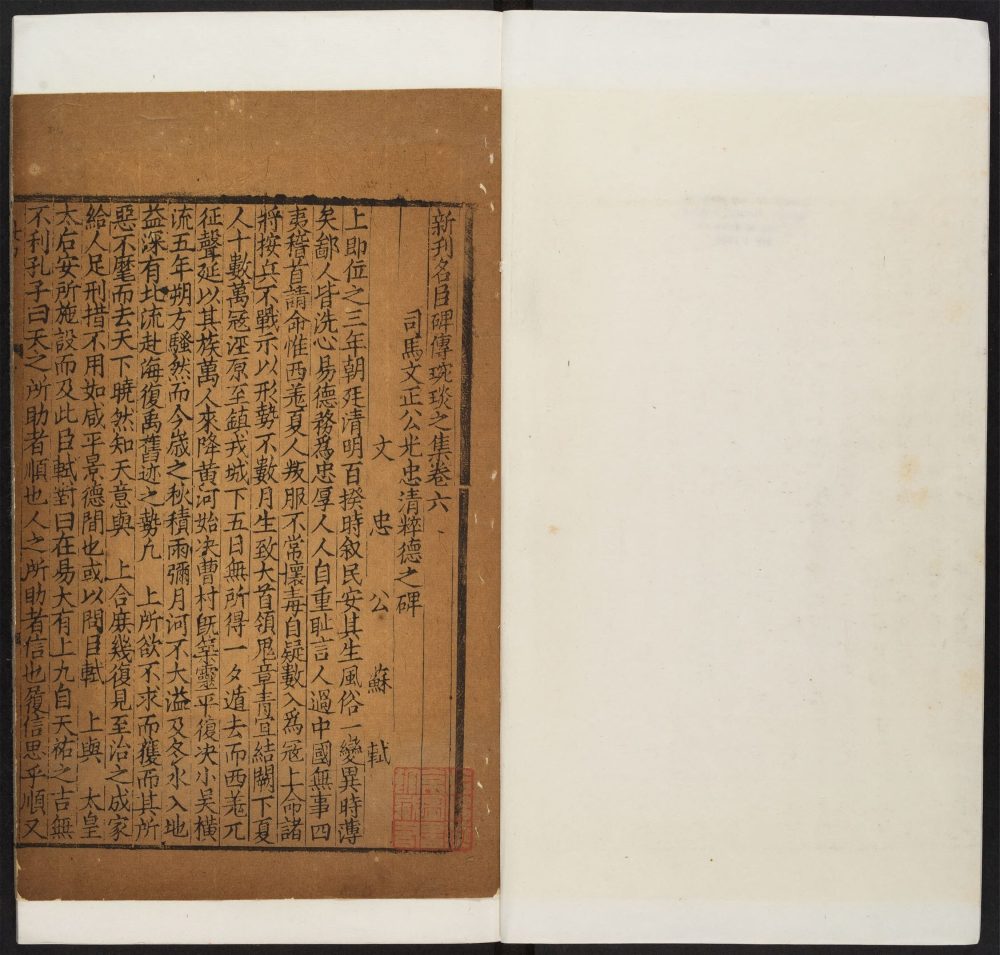 新刊名臣碑傳琬琰之集卷六
司馬文正公光忠清粹德之碑
文忠公蘇軾
上即位之三年朝廷清明百揆時叙民安其生風俗一變異時薄
矣鄙人皆洗心易德務爲忠厚人人自重耻言人過中國無事四
夷稽首請命惟西羌夏人叛服不常懷毒自疑數入爲冦上命諸
將按兵不戰示以形勢不數月生致大首領鬼章青宜結闕下夏
人十數萬冦涇原至鎮戎城下五日無所得一夕遁去而西羌兀
征聲延以其族萬人來降黄河始决曹村旣築靈平復决小吴横
流五年朔方騷然而今歲之秋積雨彌月河不大溢及冬水入地
益深有北流赴海復禹舊迹之勢凡 上所欲不求而獲而其所
惡不麾而去天下曉然知天意與 上合庶幾復見至治之成家
給人足刑措不用如咸平景德間也或以問臣軾 上與 太皇
太后安所施設而及此臣軾對曰在易大有上九自天祐之吉無
不利孔子曰天之所助者順也人之所助者信也履信思乎順又